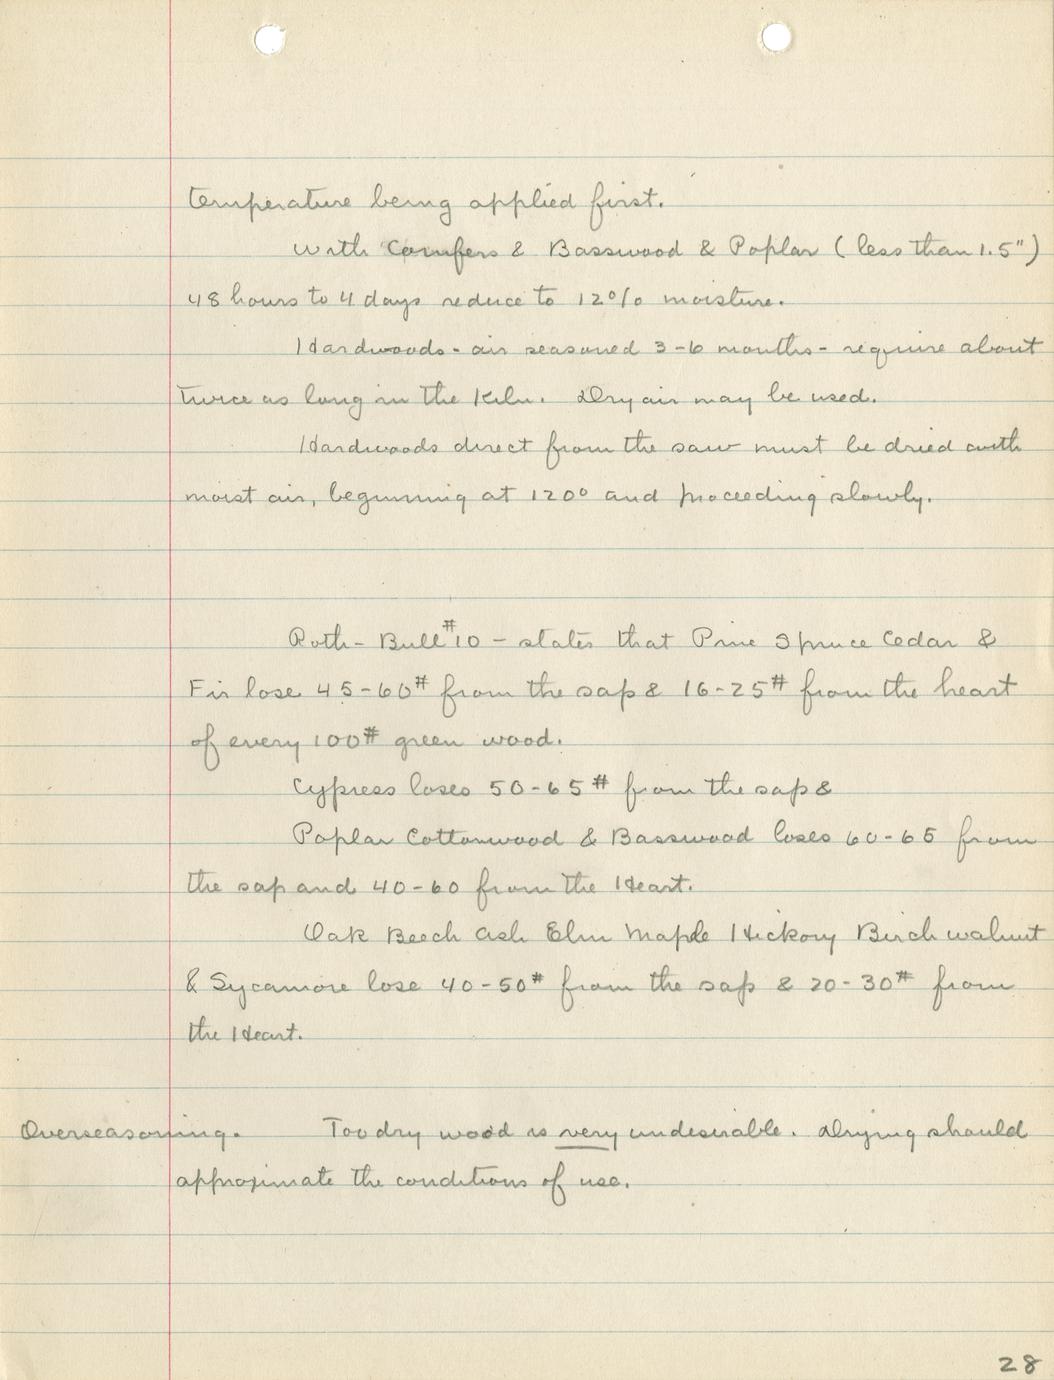 temperature being applied first.
with Conifers & Basswood & Poplar (less than 1.5")
48 hours to 4 days reduce to 12% moisture.
Hardwoods - air seasoned 3-6 months - require about
twice as long in the Kiln. Dry air may be used.
Hardwoods direct from the saw must be dried with
moist air, beginning at 120° and proceeding slowly.
Roth - Bull #10 - states that Pine Spruce Cedar &
Fir lose 45-60# from the sap & 16-25# from the heart
of every 100# green wood.
Cypress loses 50-65# from the sap &
Poplar Cottonwood & Basswood loses 60-65 from
the sap and 40-60 from the Heart.
Oak Beech Ash Elm Maple Hickory Birch walnut
& Sycamore lose 40-50# from the sap & 20-30# from
the Heart.
Overseasoning. Too dry wood is very undesirable. Drying should
approximate the conditions of use.
28